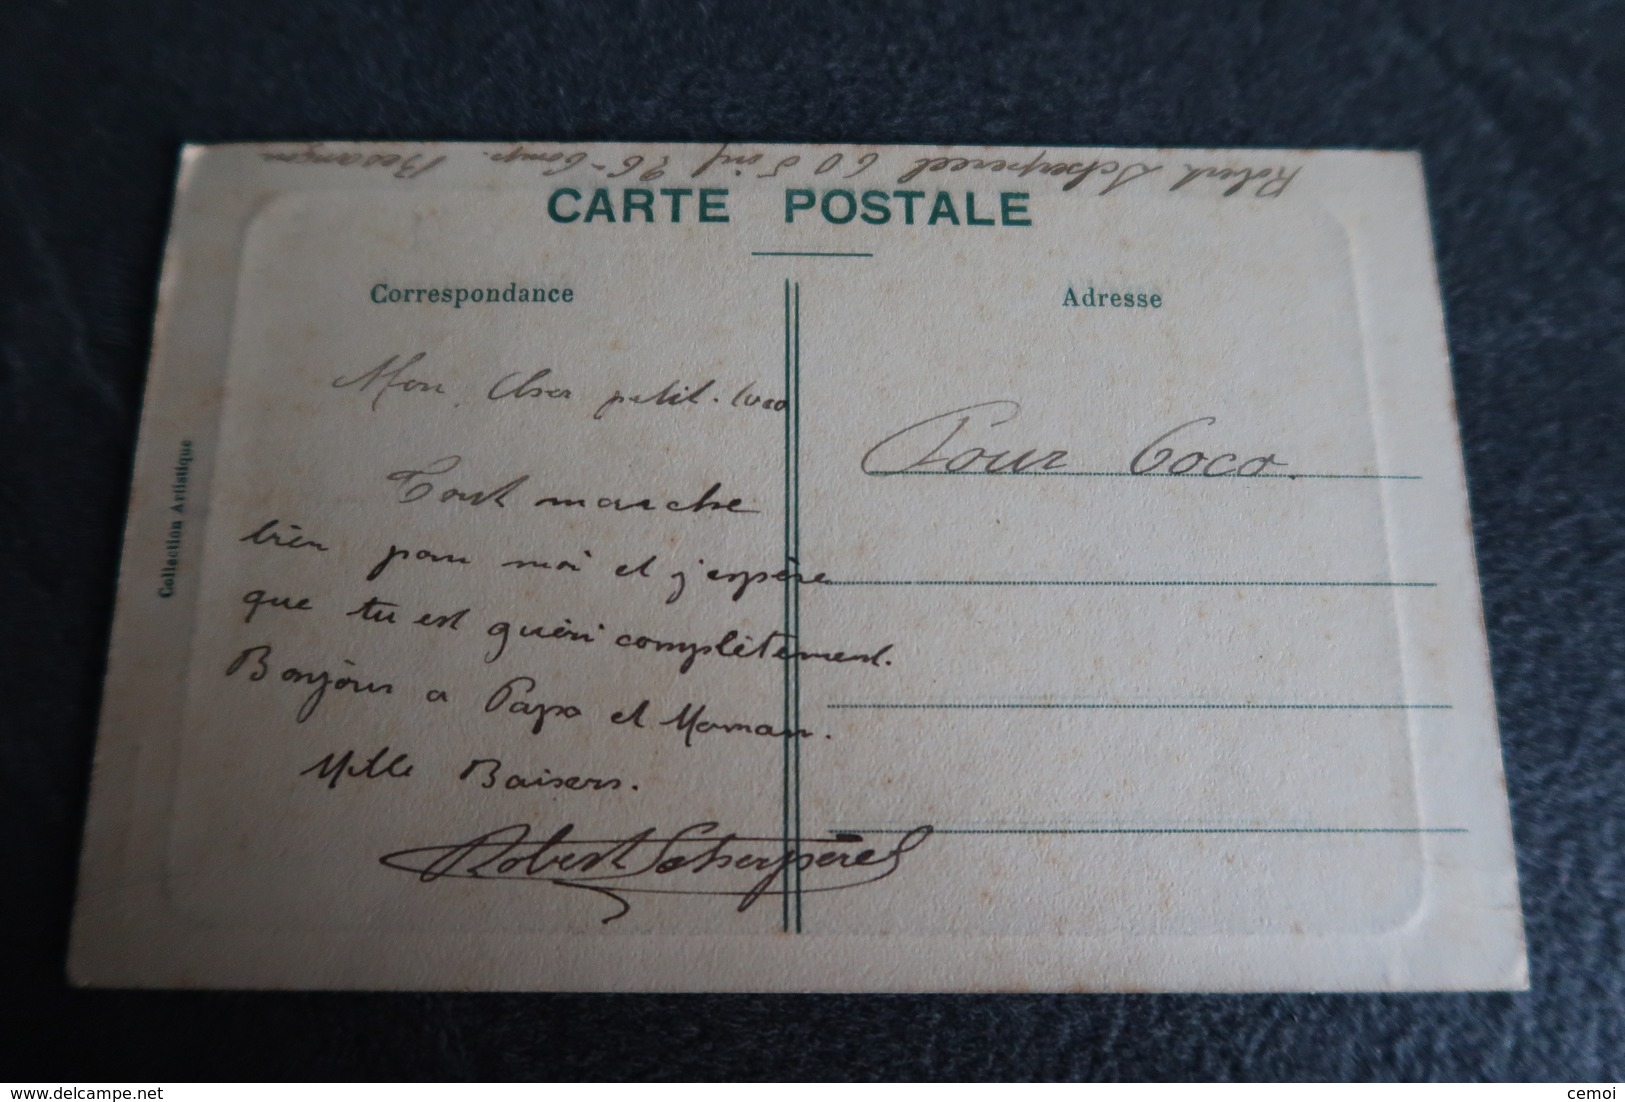 Robert Scherpereel 60 5 inf 26 - Comp. Besançon
CARTE POSTALE
Correspondance
Adresse
Collection Artistique
Mon Cher petit. Coco
Tout marche
bien pour moi et j'espère
que tu est guéri complètement.
Bonjour a Papa et Maman.
Mille Baisers.
Robert Scherpereel
Pour Coco.
delcampe.net
cemoi